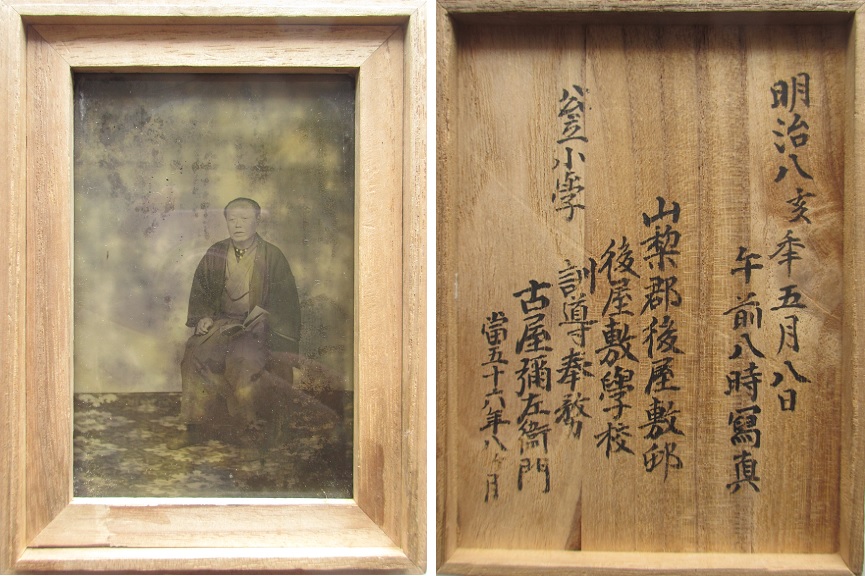 明治八亥年五月八日
午前八時寫真
山梨郡後屋敷邨
後屋敷學校
公立小学
訓導奉務
古屋彌左衞門
當五十六年八ヶ月